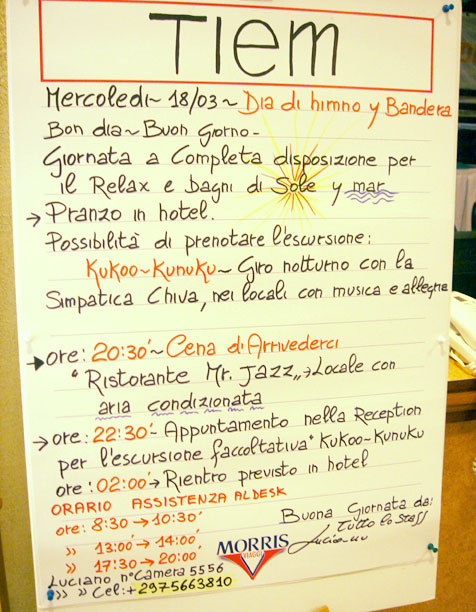 TIEM
Mercoledì~18/03~Dia di himno y Bandera
Bon dia~Buon Giorno-
Giornata a Completa disposizione per
il Relax e bagni di Sole y mar
→ Pranzo in hotel.
Possibilità di prenotare l'escursione:
Kukoo~Kunuku~Giro notturno con la
Simpatica Chiva, nei locali con musica e allegria
→ ore: 20:30'~Cena di Arrivederci
"Ristorante Mr. Jazz„→Locale con
aria condizionata
→ ore: 22:30'- Appuntamento nella Reception
per l'escursione faccoltativa "Kukoo~Kunuku
ore: 02:00'→Rientro previsto in hotel
ORARIO ASSISTENZA AL DESK
ore: 8:30→10:30'
» 13:00'→14:00'
» 17:30→20:00'
Buona Giornata da:
tutto lo staff
Luciano
MORRIS
VIAGGI
Luciano n°Camera 5556
» » Cel:+2975663810